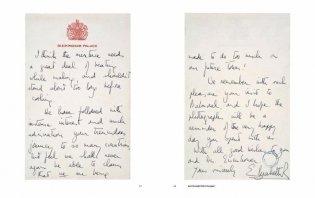 BUCKINGHAM PALACE
I think the mixture needs
a great deal of beating
while making, and shouldn't
stand about too long before
cooking.
We have followed with
intense interest and much
admiration your tremendous
journey to so many countries,
but feel we shall never
again be able to claim
that we are being
made to do too much on
our future tours!
We remember with such
pleasure your visit to
Balmoral, and I hope the
photograph will be a
reminder of the very happy
day you spent with us.
With all good wishes to you
and Mrs Eisenhower.
Yours sincerely
Elizabeth R
BUCKINGHAM PALACE